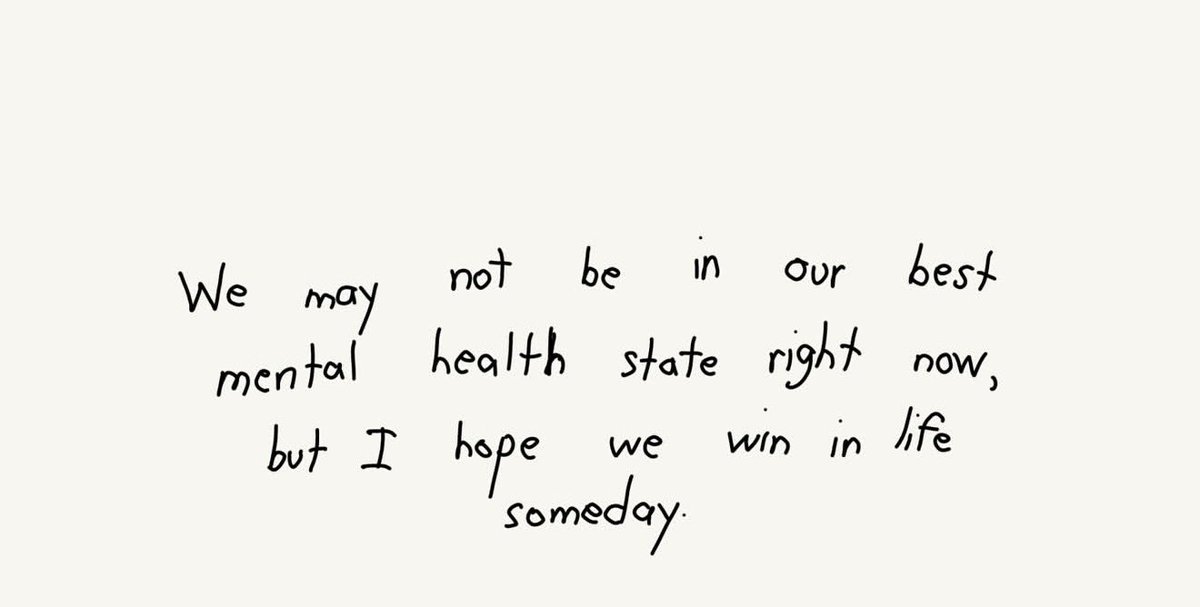 We may not be in our best
mental health state right now,
but I hope we win in life
someday.